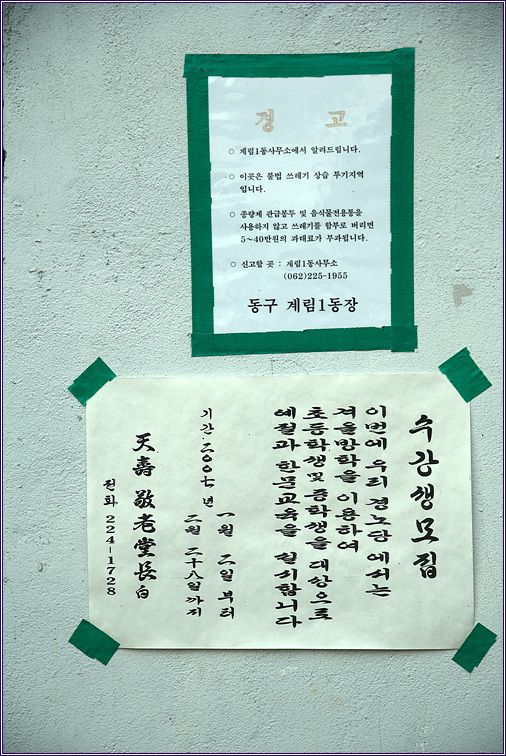 경 고
○ 계림1동사무소에서 알려드립니다.
○ 이곳은 불법 쓰레기 상습 투기지역
입니다.
○ 종량제 관급봉투 및 음식물전용통을
사용하지 않고 쓰레기를 함부로 버리면
5~40만원의 과태료가 부과됩니다.
○ 신고할 곳 : 계림1동사무소
(062)225-1955
동구 계림1동장
수강생모집
이번에 우리 경노당에서는
겨울방학을 이용하여
초등학생및 중학생을 대상으로
예절과 한문교육을 실시합니다
기간·二○○七년
一월 二일 부터
二월 二十八일까지
天壽 敬老堂長 白
전화 224-1728